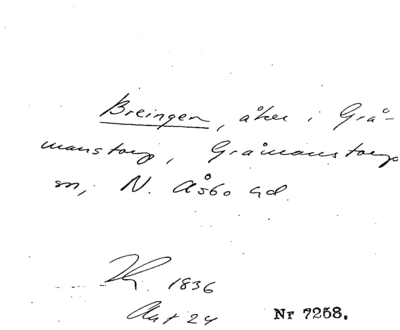 Breingen, åker i Grå-
manstorp, Gråmanstorps
sn, N. Åsbo hd.
1836
Akt 24
Nr 7258.